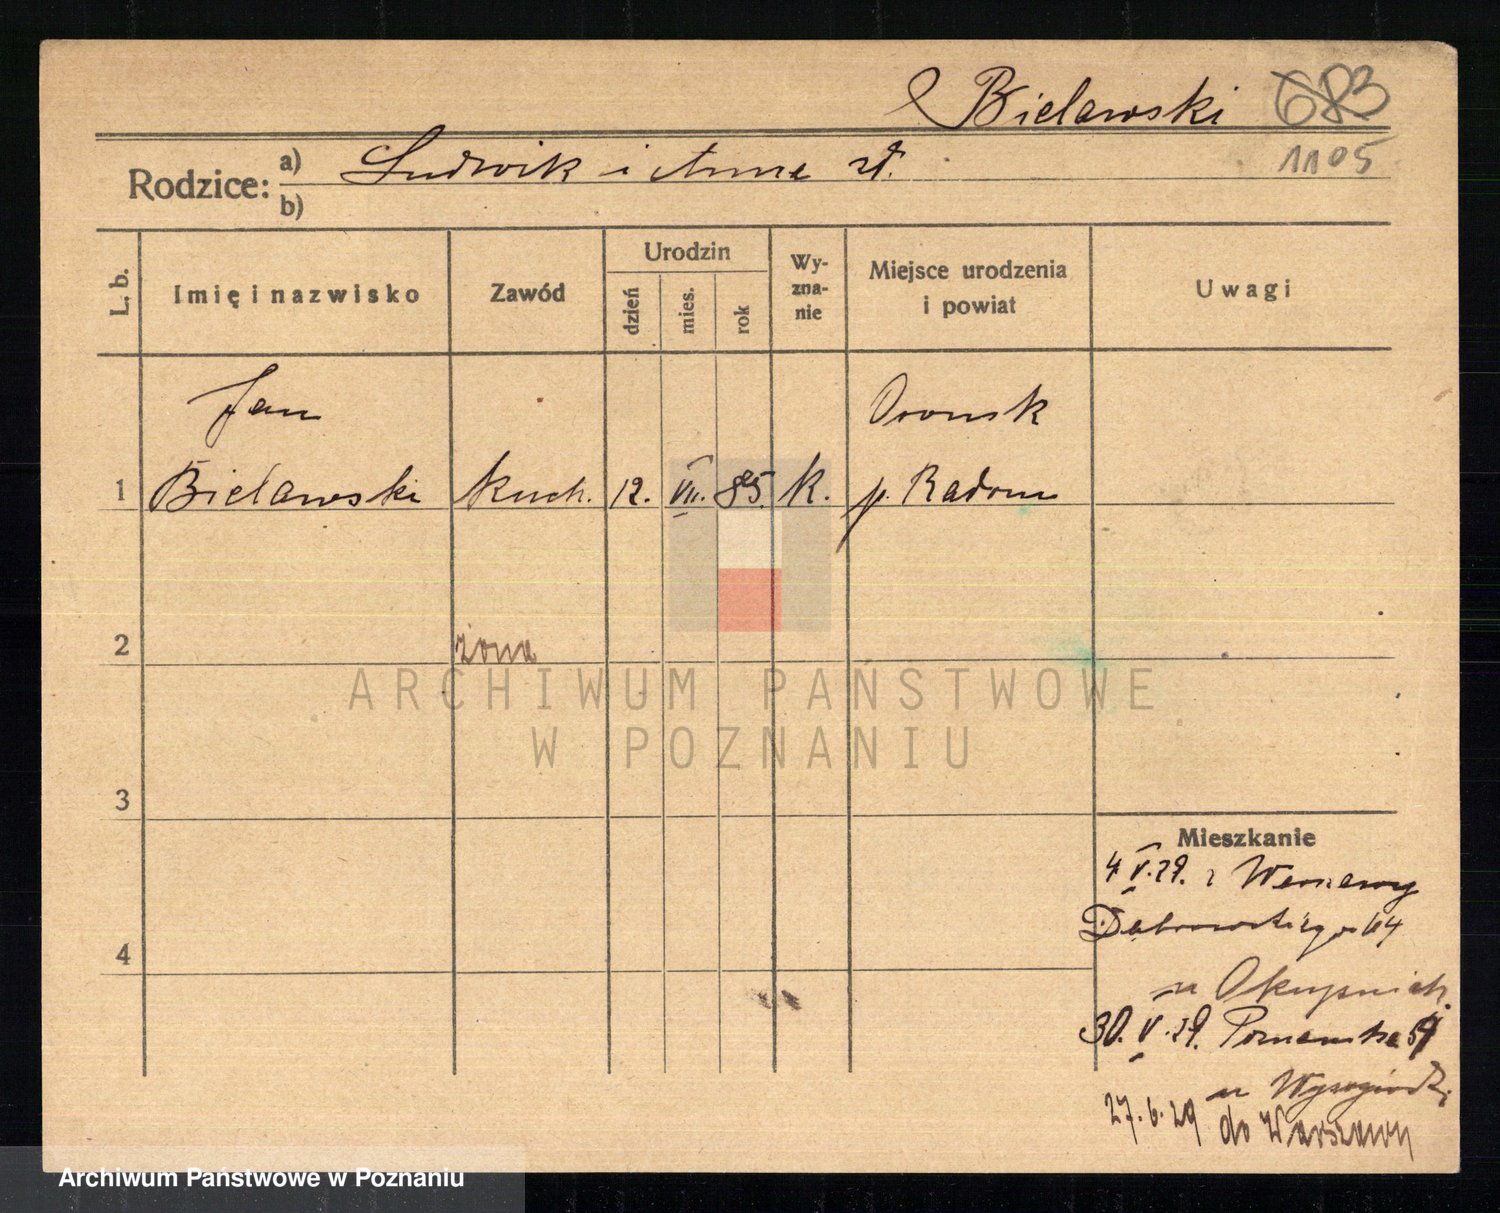 Bielawski 683
Rodzice: a) Ludwik i Anna
1105
b)
L. b.
Imię i nazwisko
Zawód
Urodzin
dzień
mies.
rok
Wy-
zna-
nie
Miejsce urodzenia
i powiat
Uwagi
Jan
Oronsk
1 Bielawski kuch. 12. VII. 85. k. p. Radom
2 żona
ARCHIWUM PAŃSTWOWE
W POZNANIU
3
Mieszkanie
4 V. 29. z Warszawy
Dąbrowskiego 64
4
u
30. V. 29. Poznańska
u
27. 6. 29 do Warszawy
Archiwum Państwowe w Poznaniu